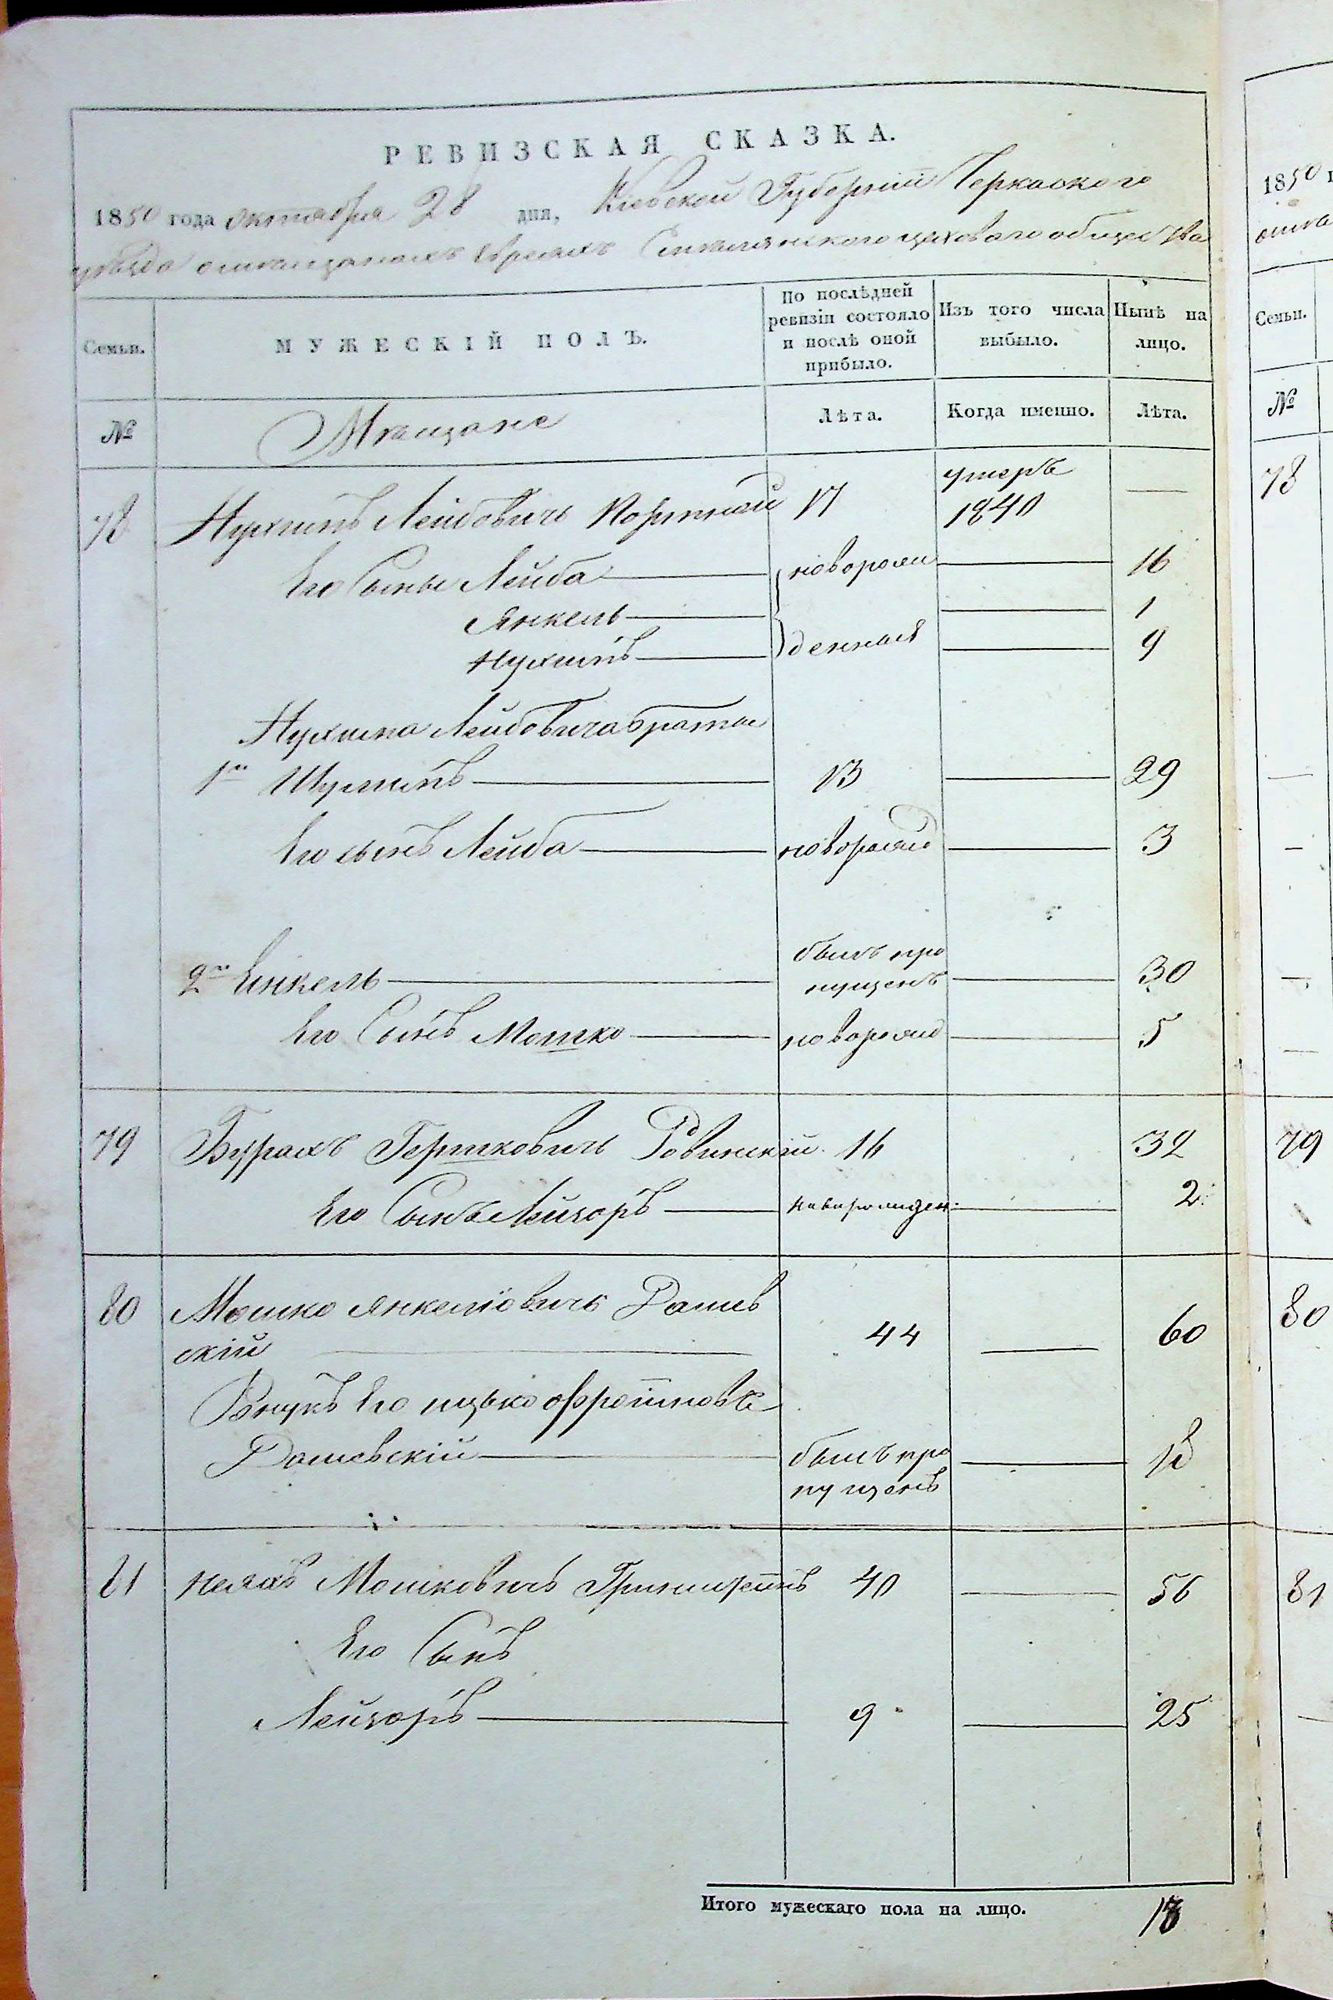 РЕВИЗСКАЯ СКАЗКА.
1850 года октября 28 дня, Кіевской Губерніи Черкаского
уѣзда о мещанахъ Евреяхъ Смелянского цеховаго общества
Семьи.
МУЖЕСКІЙ ПОЛЪ.
По послѣдней
ревизіи состояло
и послѣ оной
прибыло.
Изъ того числа
выбыло.
Нынѣ на
лицо.
№
Мещане
Лѣта.
Когда именно.
Лѣта.
78 Нухимъ Лейбовичь Портной 17 умеръ 1840 —
Его Сыны Лейба новорож 16
Янкель 1
Нухимъ денныя 9
Нухима Лейбовича братья
1й Шулимъ 13 29
Его сынъ Лейба новорожд 3
2й Янкель былъ про
пущенъ 30
Его Сынъ Мошко новорожд 5
79 Бурахъ Гершковичь Ровинскій 16 32
Его Сынъ Лейзоръ новорожден: 2
80 Мошко Янкелiовичь Рашев
скій 44 60
Внукъ Его Ицько
Рашевскій былъ про 18
пущенъ
81 Мошковичь 40 56
Его Сынъ
Лейзоръ 9 25
Итого мужескаго пола на лицо. 13
1850
Семьи.
№
78
79
80
81